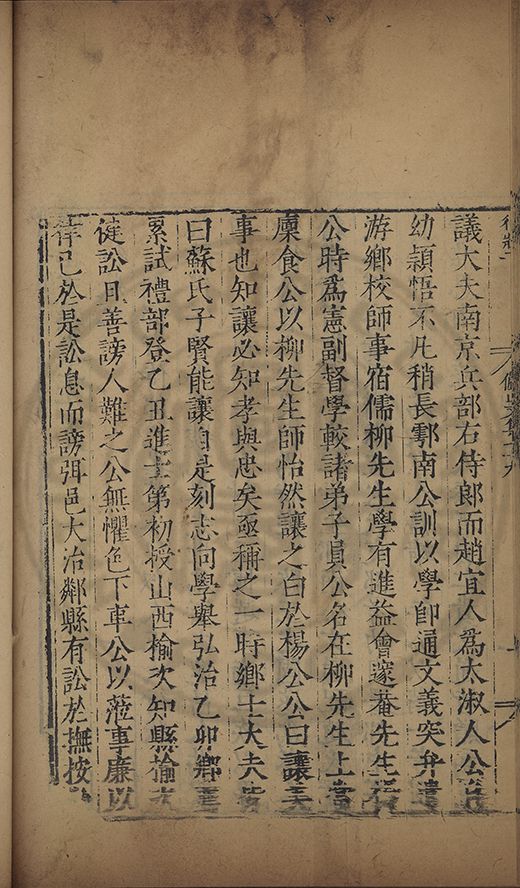 議大夫南京兵部右侍郎而趙宜人為太淑人公
幼頴悟不凡稍長鄠南公訓以學即通文義突弁遣
游鄉校師事宿儒柳先生學有進益會邃菴先生楊
公時為憲副督學較諸弟子員公名在柳先生上當
廩食公以柳先生師怡然讓之白於楊公公曰讓美
事也知讓必知孝與忠矣亟稱之一時鄉士大夫皆
曰蘇氏子賢能讓自是刻志向學舉弘治乙卯鄉
累試禮部登乙丑進士第初授山西榆次知縣榆次
健訟且善謗人難之公無懼色下車公以蒞事廉以
律己於是訟息而謗弭邑大治鄰縣有訟於撫按